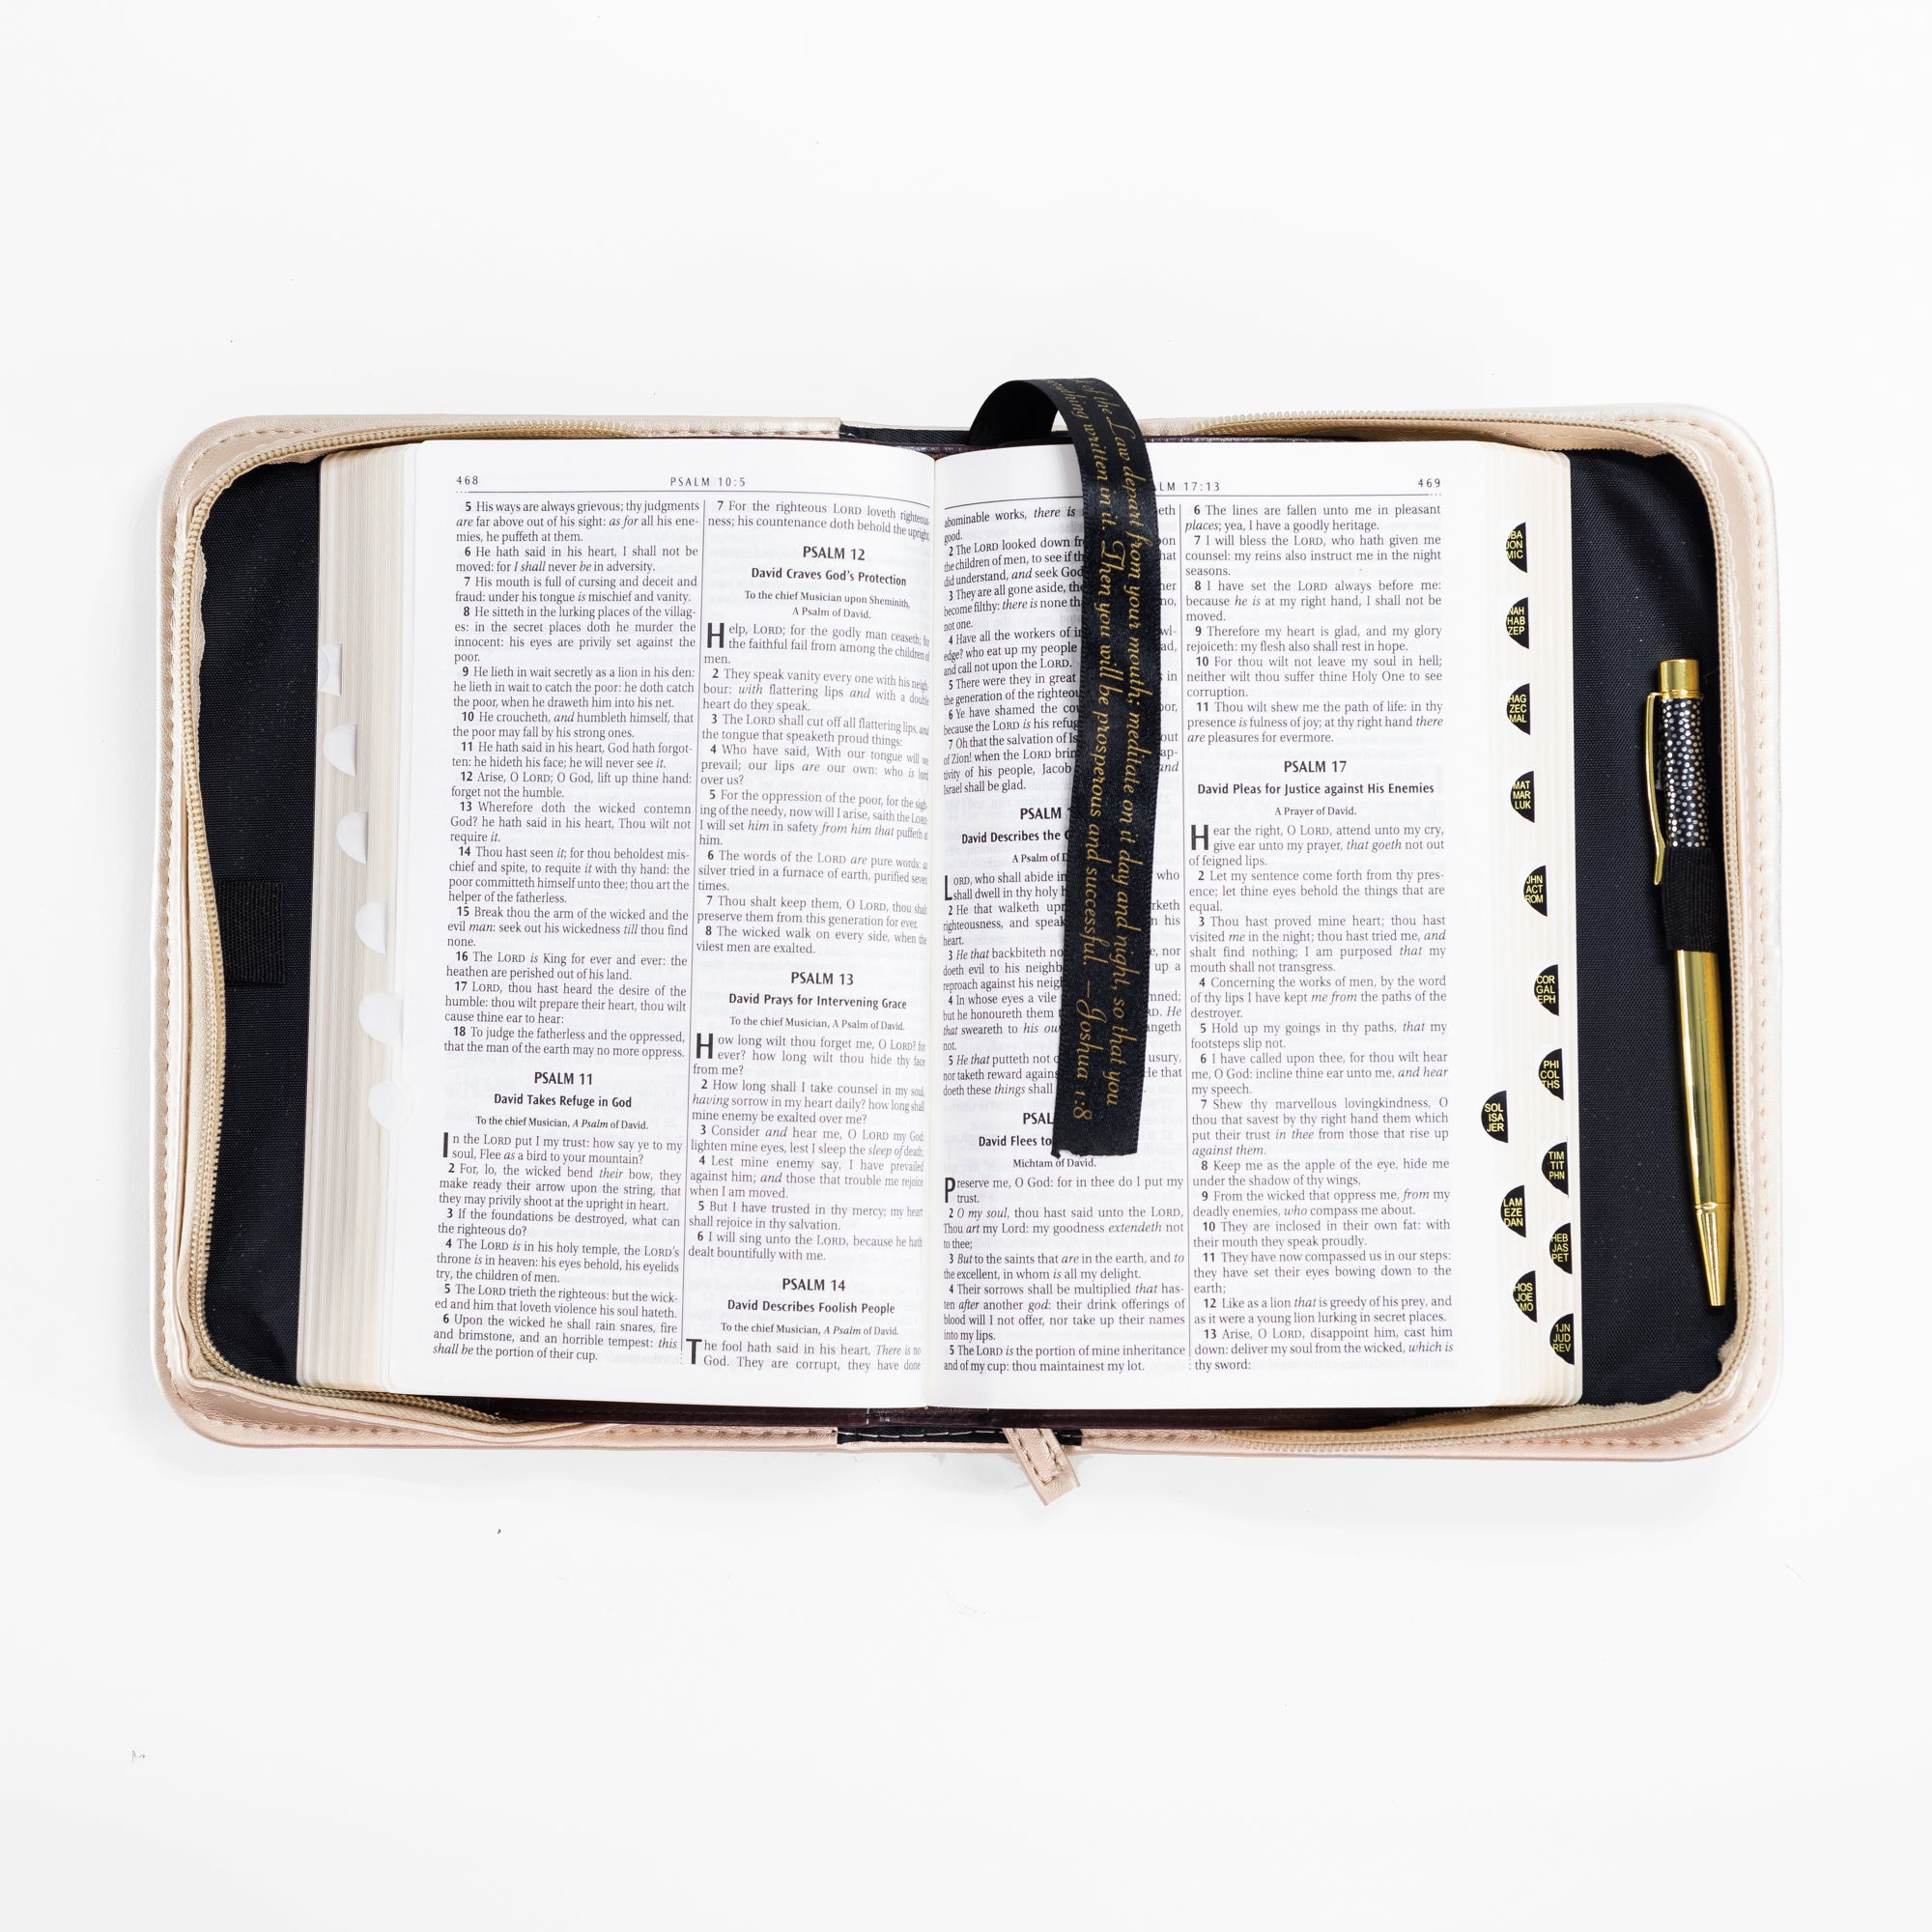 468
PSALM 10:5
5 His ways are always grievous; thy judgments
are far above out of his sight: as for all his ene-
mies, he puffeth at them.
6 He hath said in his heart, I shall not be
moved: for I shall never be in adversity.
7 His mouth is full of cursing and deceit and
fraud: under his tongue is mischief and vanity.
8 He sitteth in the lurking places of the villag-
es: in the secret places doth he murder the
innocent: his eyes are privily set against the
poor.
9 He lieth in wait secretly as a lion in his den:
he lieth in wait to catch the poor: he doth catch
the poor, when he draweth him into his net.
10 He croucheth, and humbleth himself, that
the poor may fall by his strong ones.
11 He hath said in his heart, God hath forgot-
ten: he hideth his face; he will never see it.
12 Arise, O LORD; O God, lift up thine hand:
forget not the humble.
13 Wherefore doth the wicked contemn
God? he hath said in his heart, Thou wilt not
require it.
14 Thou hast seen it; for thou beholdest mis-
chief and spite, to requite it with thy hand: the
poor committeth himself unto thee; thou art the
helper of the fatherless.
15 Break thou the arm of the wicked and the
evil man: seek out his wickedness till thou find
none.
16 The LORD is King for ever and ever: the
heathen are perished out of his land.
17 LORD, thou hast heard the desire of the
humble: thou wilt prepare their heart, thou wilt
cause thine ear to hear:
18 To judge the fatherless and the oppressed,
that the man of the earth may no more oppress.
PSALM 11
David Takes Refuge in God
To the chief Musician, A Psalm of David.
In the LORD put I my trust: how say ye to my
soul, Flee as a bird to your mountain?
2 For, lo, the wicked bend their bow, they
make ready their arrow upon the string, that
they may privily shoot at the upright in heart.
3 If the foundations be destroyed, what can
the righteous do?
4 The LORD is in his holy temple, the LORD's
throne is in heaven: his eyes behold, his eyelids
try, the children of men.
5 The LORD trieth the righteous: but the wick-
ed and him that loveth violence his soul hateth.
6 Upon the wicked he shall rain snares, fire
and brimstone, and an horrible tempest: this
shall be the portion of their cup.
7 For the righteous LORD loveth righteous-
ness; his countenance doth behold the upright.
PSALM 12
David Craves God's Protection
To the chief Musician upon Sheminith,
A Psalm of David.
Help, LORD; for the godly man ceaseth; for
the faithful fail from among the children of
men.
2 They speak vanity every one with his neigh-
bour: with flattering lips and with a double
heart do they speak.
3 The LORD shall cut off all flattering lips, and
the tongue that speaketh proud things:
4 Who have said, With our tongue will we
prevail; our lips are our own: who is lord
over us?
5 For the oppression of the poor, for the sigh-
ing of the needy, now will I arise, saith the LORD;
I will set him in safety from him that puffeth at
him.
6 The words of the LORD are pure words: as
silver tried in a furnace of earth, purified seven
times.
7 Thou shalt keep them, O LORD, thou shalt
preserve them from this generation for ever.
8 The wicked walk on every side, when the
vilest men are exalted.
PSALM 13
David Prays for Intervening Grace
To the chief Musician, A Psalm of David.
How long wilt thou forget me, O LORD? for
ever? how long wilt thou hide thy face
from me?
2 How long shall I take counsel in my soul,
having sorrow in my heart daily? how long shall
mine enemy be exalted over me?
3 Consider and hear me, O LORD my God:
lighten mine eyes, lest I sleep the sleep of death;
4 Lest mine enemy say, I have prevailed
against him; and those that trouble me rejoice
when I am moved.
5 But I have trusted in thy mercy; my heart
shall rejoice in thy salvation.
6 I will sing unto the LORD, because he hath
dealt bountifully with me.
PSALM 14
David Describes Foolish People
To the chief Musician, A Psalm of David.
The fool hath said in his heart, There is no
God. They are corrupt, they have done
LM 17:13
469
abominable works, there is eth
good.
2 The LORD looked down fr on
the children of men, to see if th hat
did understand, and seek God
3 They are all gone aside, the her
become filthy: there is none th no,
not one.
4 Have all the workers of in wl-
edge? who eat up my people ad,
and call not upon the LORD.
5 There were they in great in
the generation of the righteou
6 Ye have shamed the cou oor,
because the LORD is his refug
7 Oh that the salvation of Is out
of Zion! when the LORD brin ap-
tivity of his people, Jacob and
Israel shall be glad.
PSALM 1
David Describes the
A Psalm of D
LORD, who shall abide in who
shall dwell in thy holy h
2 He that walketh upr rketh
righteousness, and speak n his
heart.
3 He that backbiteth no e, nor
doeth evil to his neighb up a
reproach against his neig
4 In whose eyes a vile mned;
but he honoureth them RD. He
that sweareth to his ow angeth
not.
5 He that putteth not o usury,
nor taketh reward agains He that
doeth these things shall
PSAL
David Flees to
Michtam of David.
Preserve me, O God: for in thee do I put my
trust.
2 O my soul, thou hast said unto the LORD,
Thou art my Lord: my goodness extendeth not
to thee;
3 But to the saints that are in the earth, and to
the excellent, in whom is all my delight.
4 Their sorrows shall be multiplied that has-
ten after another god: their drink offerings of
blood will I not offer, nor take up their names
into my lips.
5 The LORD is the portion of mine inheritance
and of my cup: thou maintainest my lot.
6 The lines are fallen unto me in pleasant
places; yea, I have a goodly heritage.
7 I will bless the LORD, who hath given me
counsel: my reins also instruct me in the night
seasons.
8 I have set the LORD always before me:
because he is at my right hand, I shall not be
moved.
9 Therefore my heart is glad, and my glory
rejoiceth: my flesh also shall rest in hope.
10 For thou wilt not leave my soul in hell;
neither wilt thou suffer thine Holy One to see
corruption.
11 Thou wilt shew me the path of life: in thy
presence is fulness of joy; at thy right hand there
are pleasures for evermore.
PSALM 17
David Pleas for Justice against His Enemies
A Prayer of David.
Hear the right, O LORD, attend unto my cry,
give ear unto my prayer, that goeth not out
of feigned lips.
2 Let my sentence come forth from thy pres-
ence; let thine eyes behold the things that are
equal.
3 Thou hast proved mine heart; thou hast
visited me in the night; thou hast tried me, and
shalt find nothing; I am purposed that my
mouth shall not transgress.
4 Concerning the works of men, by the word
of thy lips I have kept me from the paths of the
destroyer.
5 Hold up my goings in thy paths, that my
footsteps slip not.
6 I have called upon thee, for thou wilt hear
me, O God: incline thine ear unto me, and hear
my speech.
7 Shew thy marvellous lovingkindness, O
thou that savest by thy right hand them which
put their trust in thee from those that rise up
against them.
8 Keep me as the apple of the eye, hide me
under the shadow of thy wings,
9 From the wicked that oppress me, from my
deadly enemies, who compass me about.
10 They are inclosed in their own fat: with
their mouth they speak proudly.
11 They have now compassed us in our steps:
they have set their eyes bowing down to the
earth;
12 Like as a lion that is greedy of his prey, and
as it were a young lion lurking in secret places.
13 Arise, O LORD, disappoint him, cast him
down: deliver my soul from the wicked, which is
thy sword:
of the Law depart from your mouth; mediate on it day and night, so that you
everything written in it. Then you will be prosperous and successful. –Joshua 1:8
BA
JON
MIC
NAH
HAB
ZEP
HAG
ZEC
MAL
MAT
MAR
LUK
JHN
ACT
ROM
COR
GAL
EPH
PHI
COL
THS
SOL
ISA
JER
TIM
TIT
PHN
LAM
EZE
DAN
HEB
JAS
PET
HOS
JOE
MO
1JN
JUD
REV